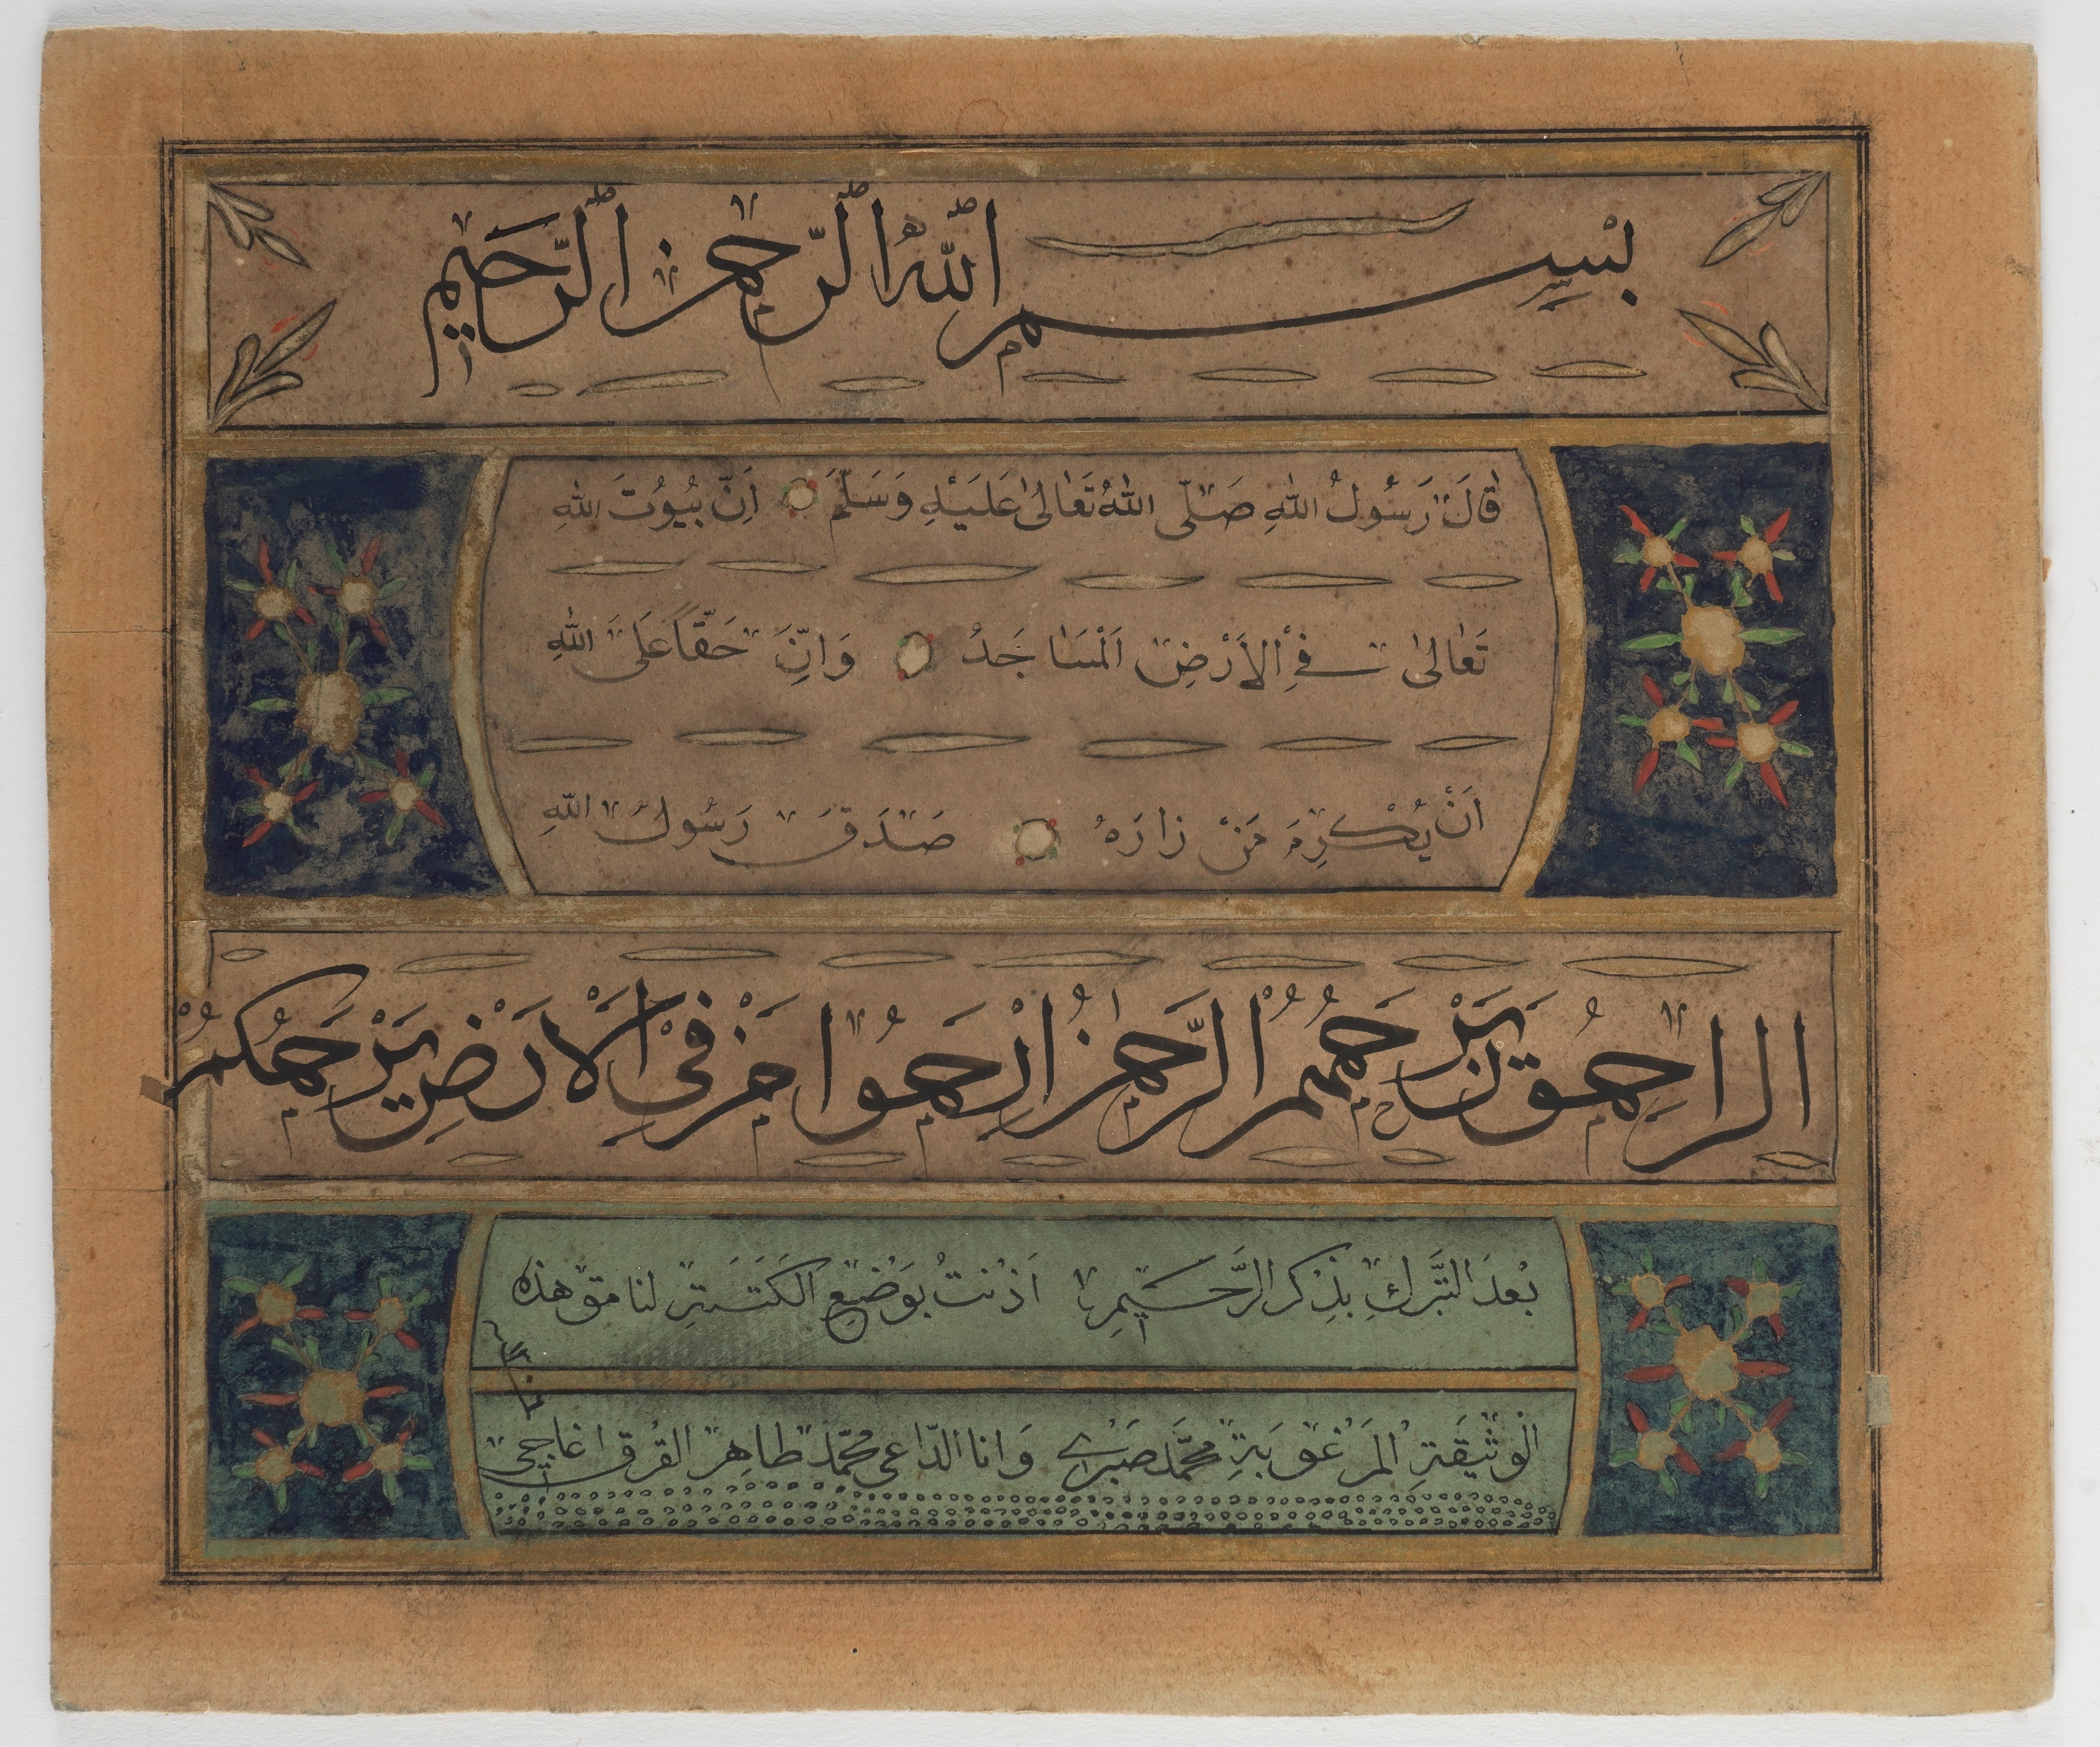 بسم الله الرحمن الرحيم
قَالَ رَسُولُ اللهِ صَلَّى اللهُ تَعَالٰى عَلَيْهِ وَسَلَّمَ اِنَّ بُيُوتَ اللهِ
تَعَالٰى فِي اْلاَرْضِ اَلْمَسَاجَدُ وَاِنَّ حَقّاً عَلَى اللهِ
اَنْ يُكْرِمَ مَنْ زَارَهُ صَدَقَ رَسُولُ اللهِ
الراحمون يرحمهم الرحمن ارحموا من في الارض يرحمكم
بعد التبرك بذكر الرحيم اذنت بوضع الكتبة لنامق هذه
الوثيقة المرغوبة محمد صبري وانا الداعي محمد طاهر